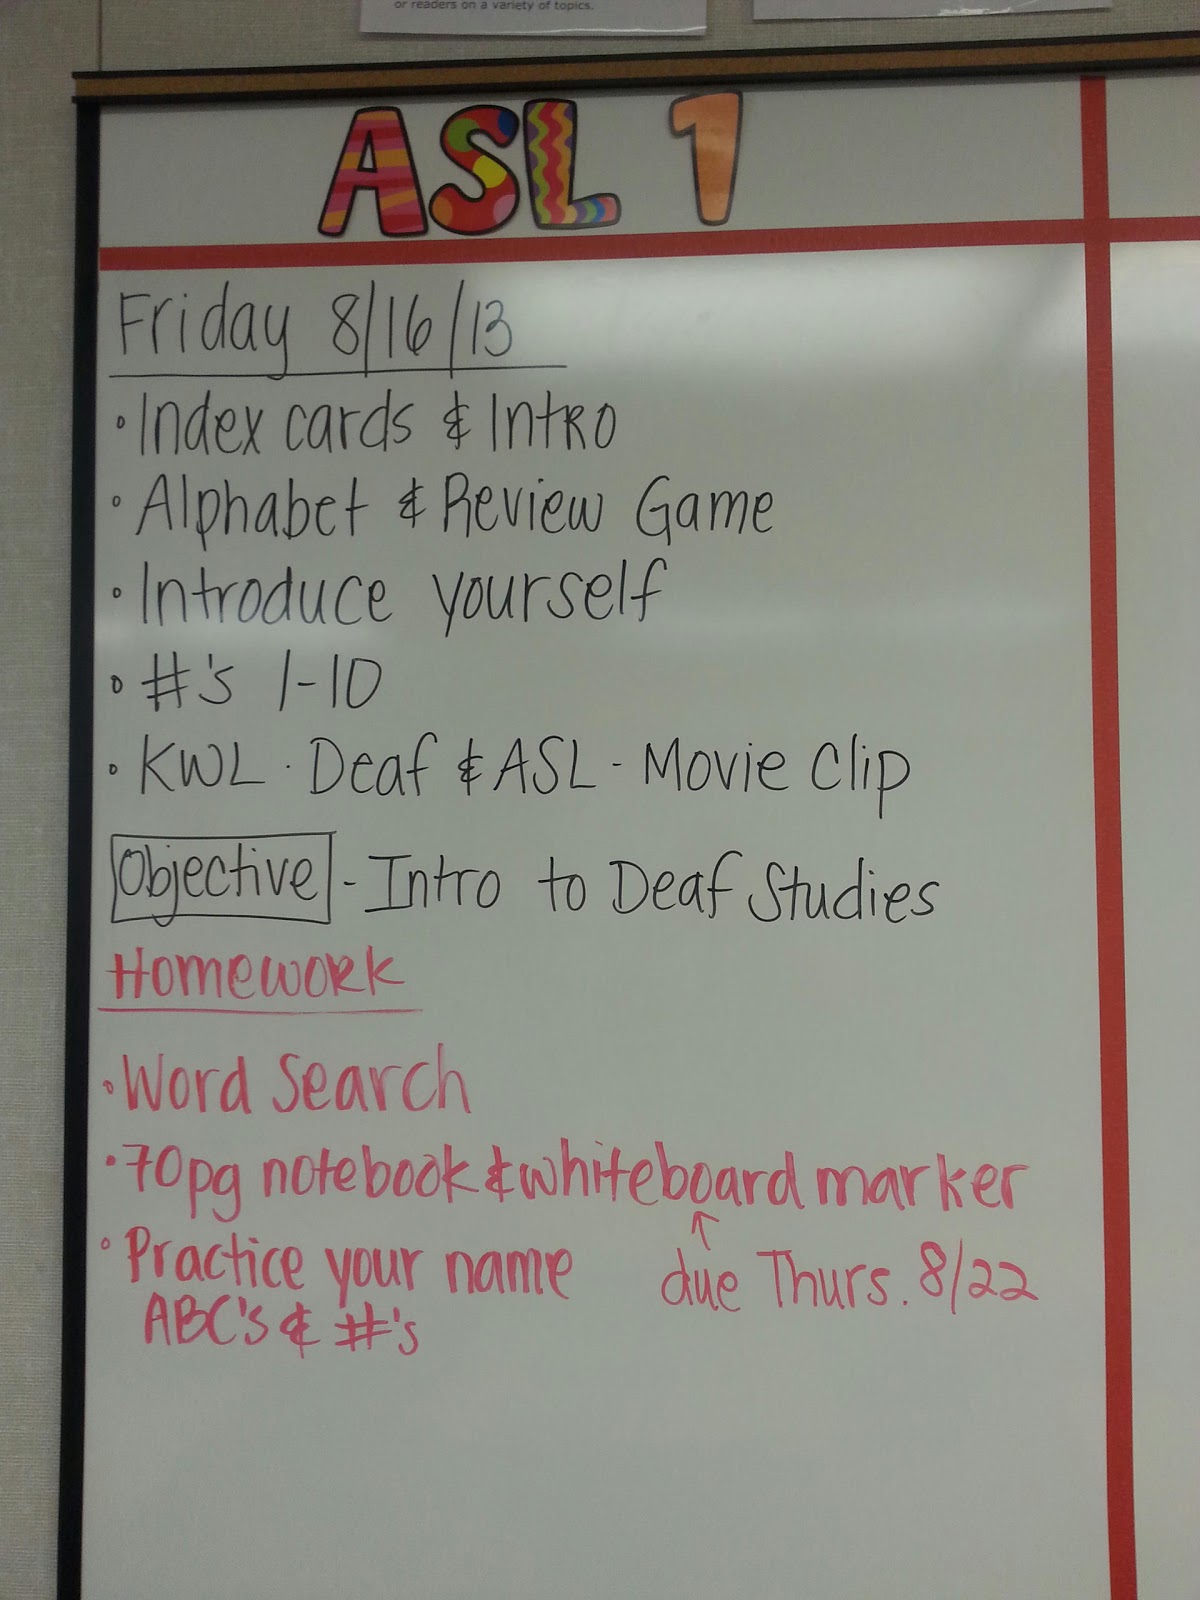 or readers on a variety of topics.
ASL 1
Friday 8/16/13
• Index cards & Intro
• Alphabet & Review Game
• Introduce yourself
• #'s 1-10
• KWL · Deaf & ASL - Movie Clip
Objective - Intro to Deaf Studies
Homework
• Word Search
• 70pg notebook & whiteboard marker
↑
• Practice your name due Thurs. 8/22
ABC's & #'s